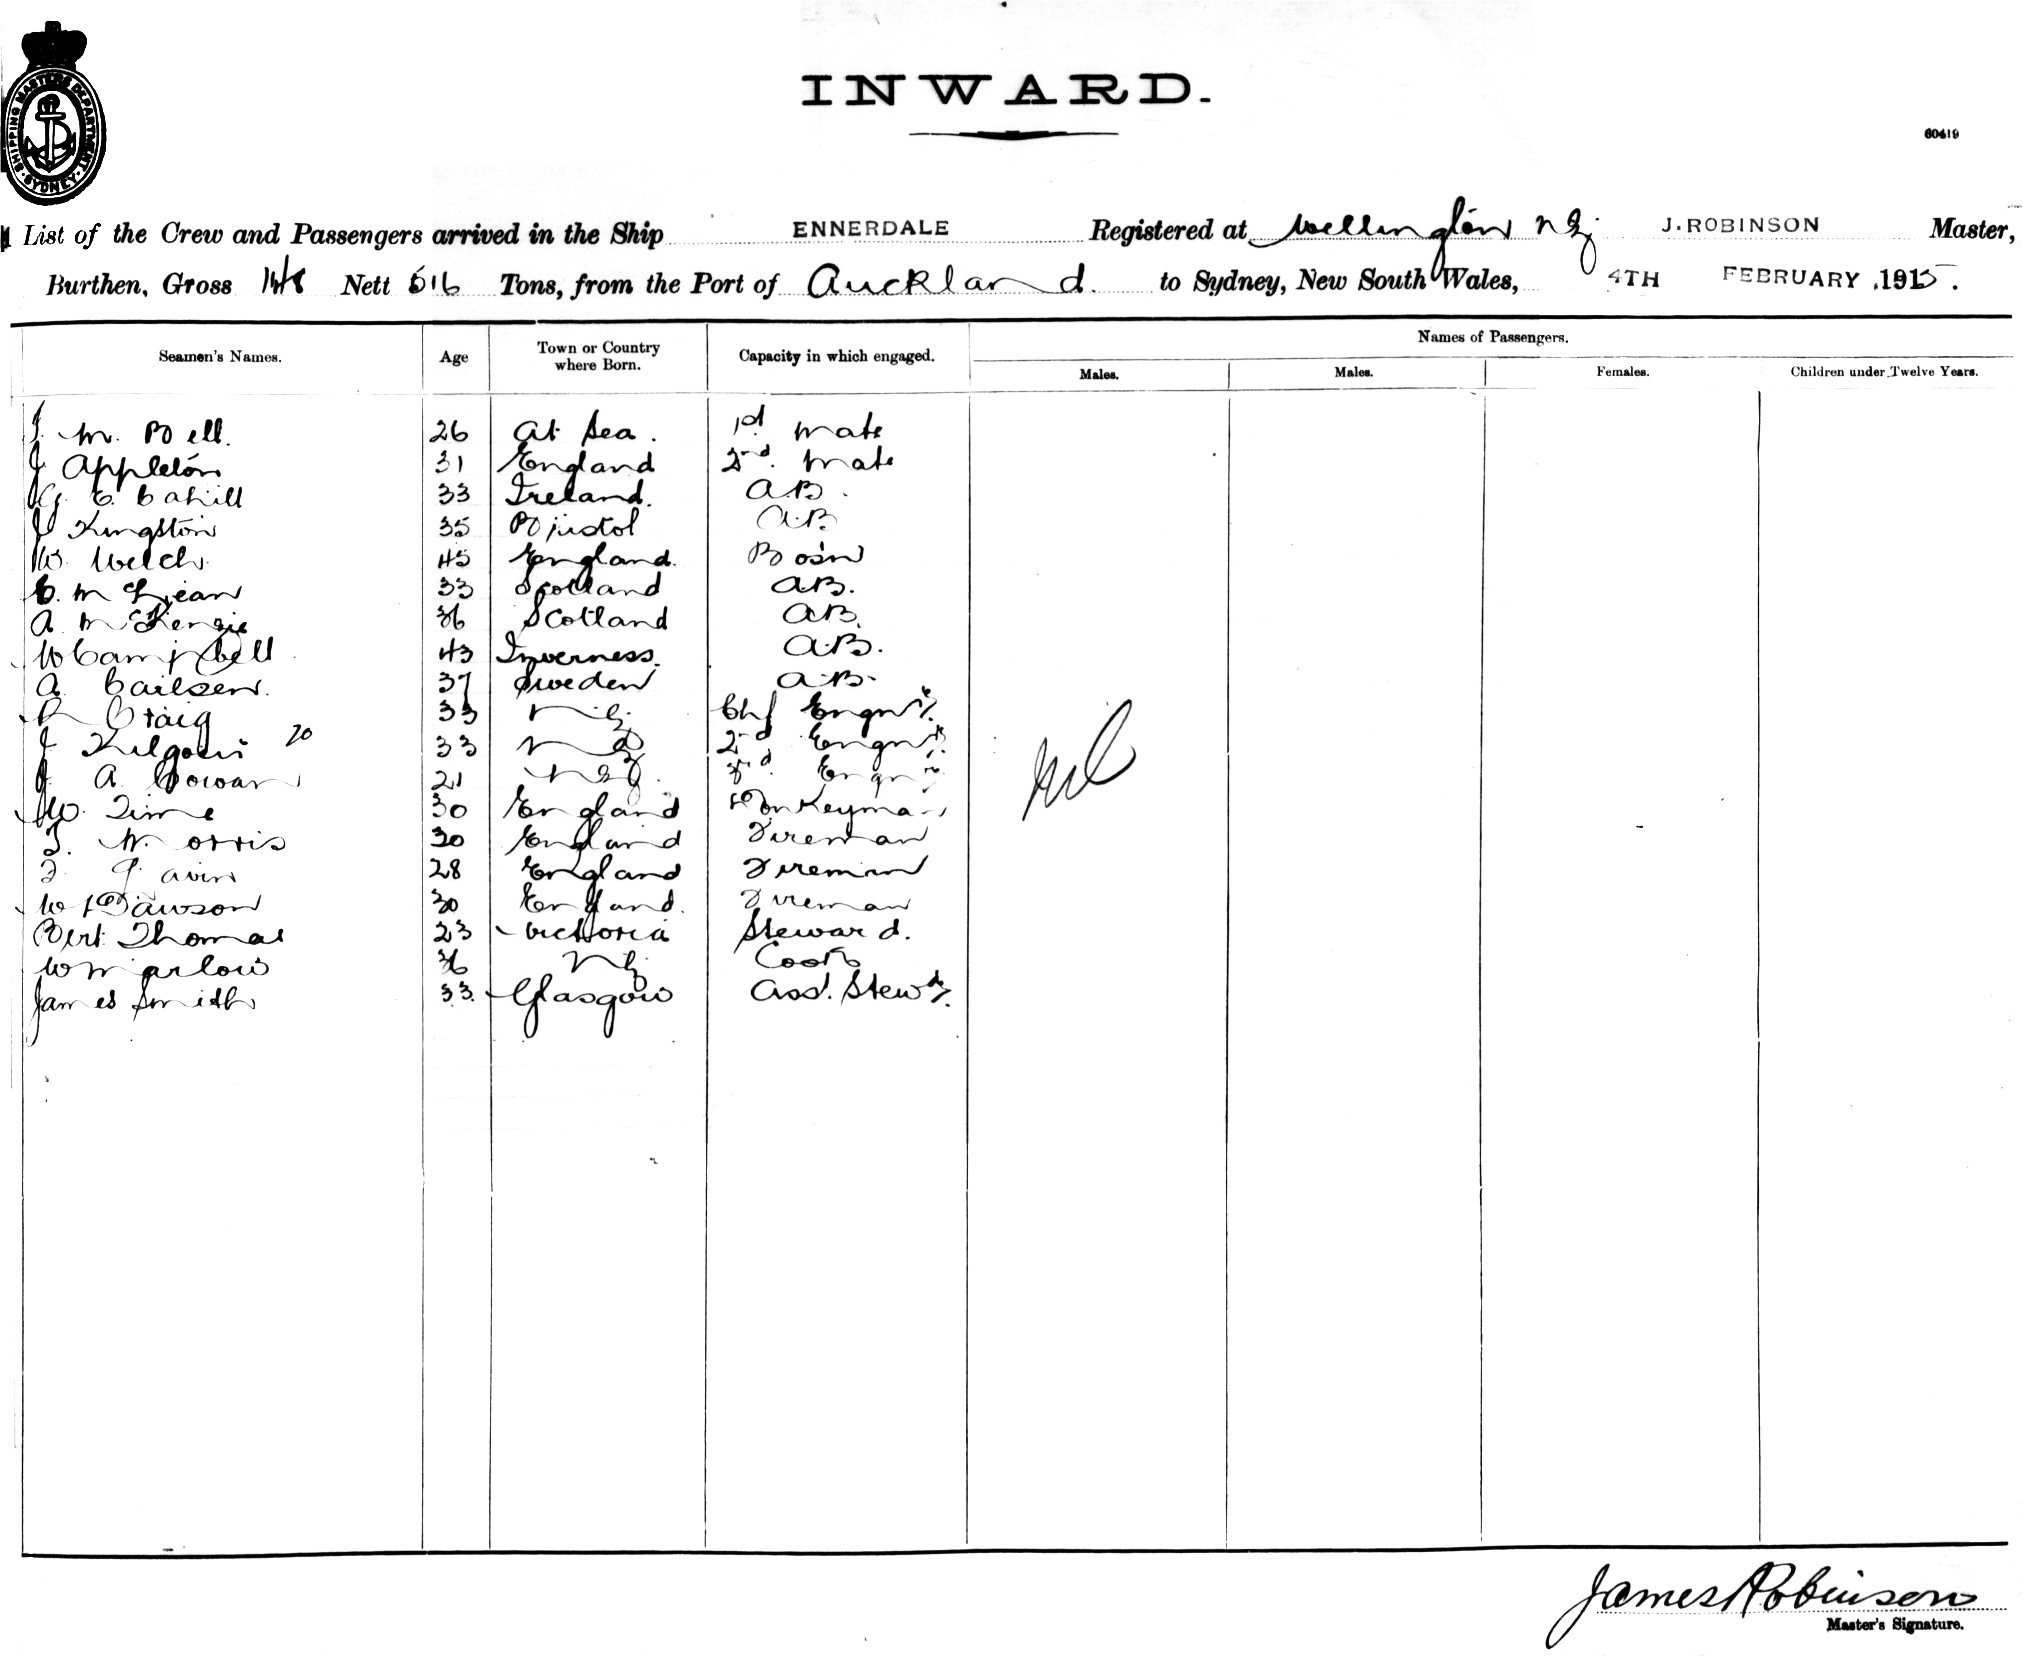 SHIPPING MASTERS DEPARTMENT. SYDNEY.
INWARD.
60419
List of the Crew and Passengers arrived in the Ship ENNERDALE Registered at Wellington NZ J. ROBINSON Master,
Burthen, Gross Nett 516 Tons, from the Port of Auckland to Sydney, New South Wales, 4TH FEBRUARY 1915.
Seamen's Names. Age Town or Country where Born. Capacity in which engaged. Names of Passengers.
Males. Males. Females. Children under Twelve Years.
J. M. Bell. 26 At Sea. 1st Mate
J Appleton 31 England 2nd Mate
G. E. Cahill 33 Ireland. A.B.
J Kingston 35 Bristol A.B
W. Welch 45 England. Bosn
C. McLean 33 Scotland A.B.
A. McKenzie 36 Scotland A.B.
W Campbell 43 Inverness. A.B.
A. Carlsen. 37 Sweden A.B.
R Craig 33 NZ Chf Engnr.
J Kilgour 20 33 NZ 2nd Engnr.
J. A. Cowan 21 NZ. 3rd Engnr
W. Time 30 England Donkeyman
T. Morris 30 England Fireman
J. Gavin 28 England Fireman
W Dawson 30 England. Fireman
Bert Thomas 23 Victoria Steward.
W Marlow 36 NZ Cook
James Smith 33. Glasgow Asst. Stewd.
Nil
James Robinson
Master's Signature.